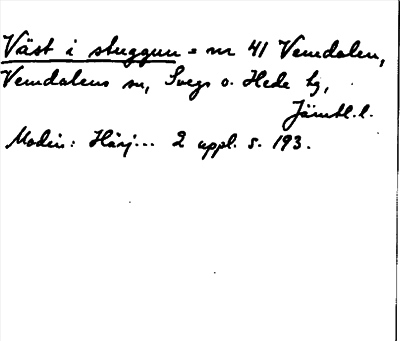 Väst i stuggun = nr 41 Vemdalen,
Vemdalens sn, Svegs o. Hede tg,
Jämtl. l.
Modin: Härj... 2 uppl. s. 193.